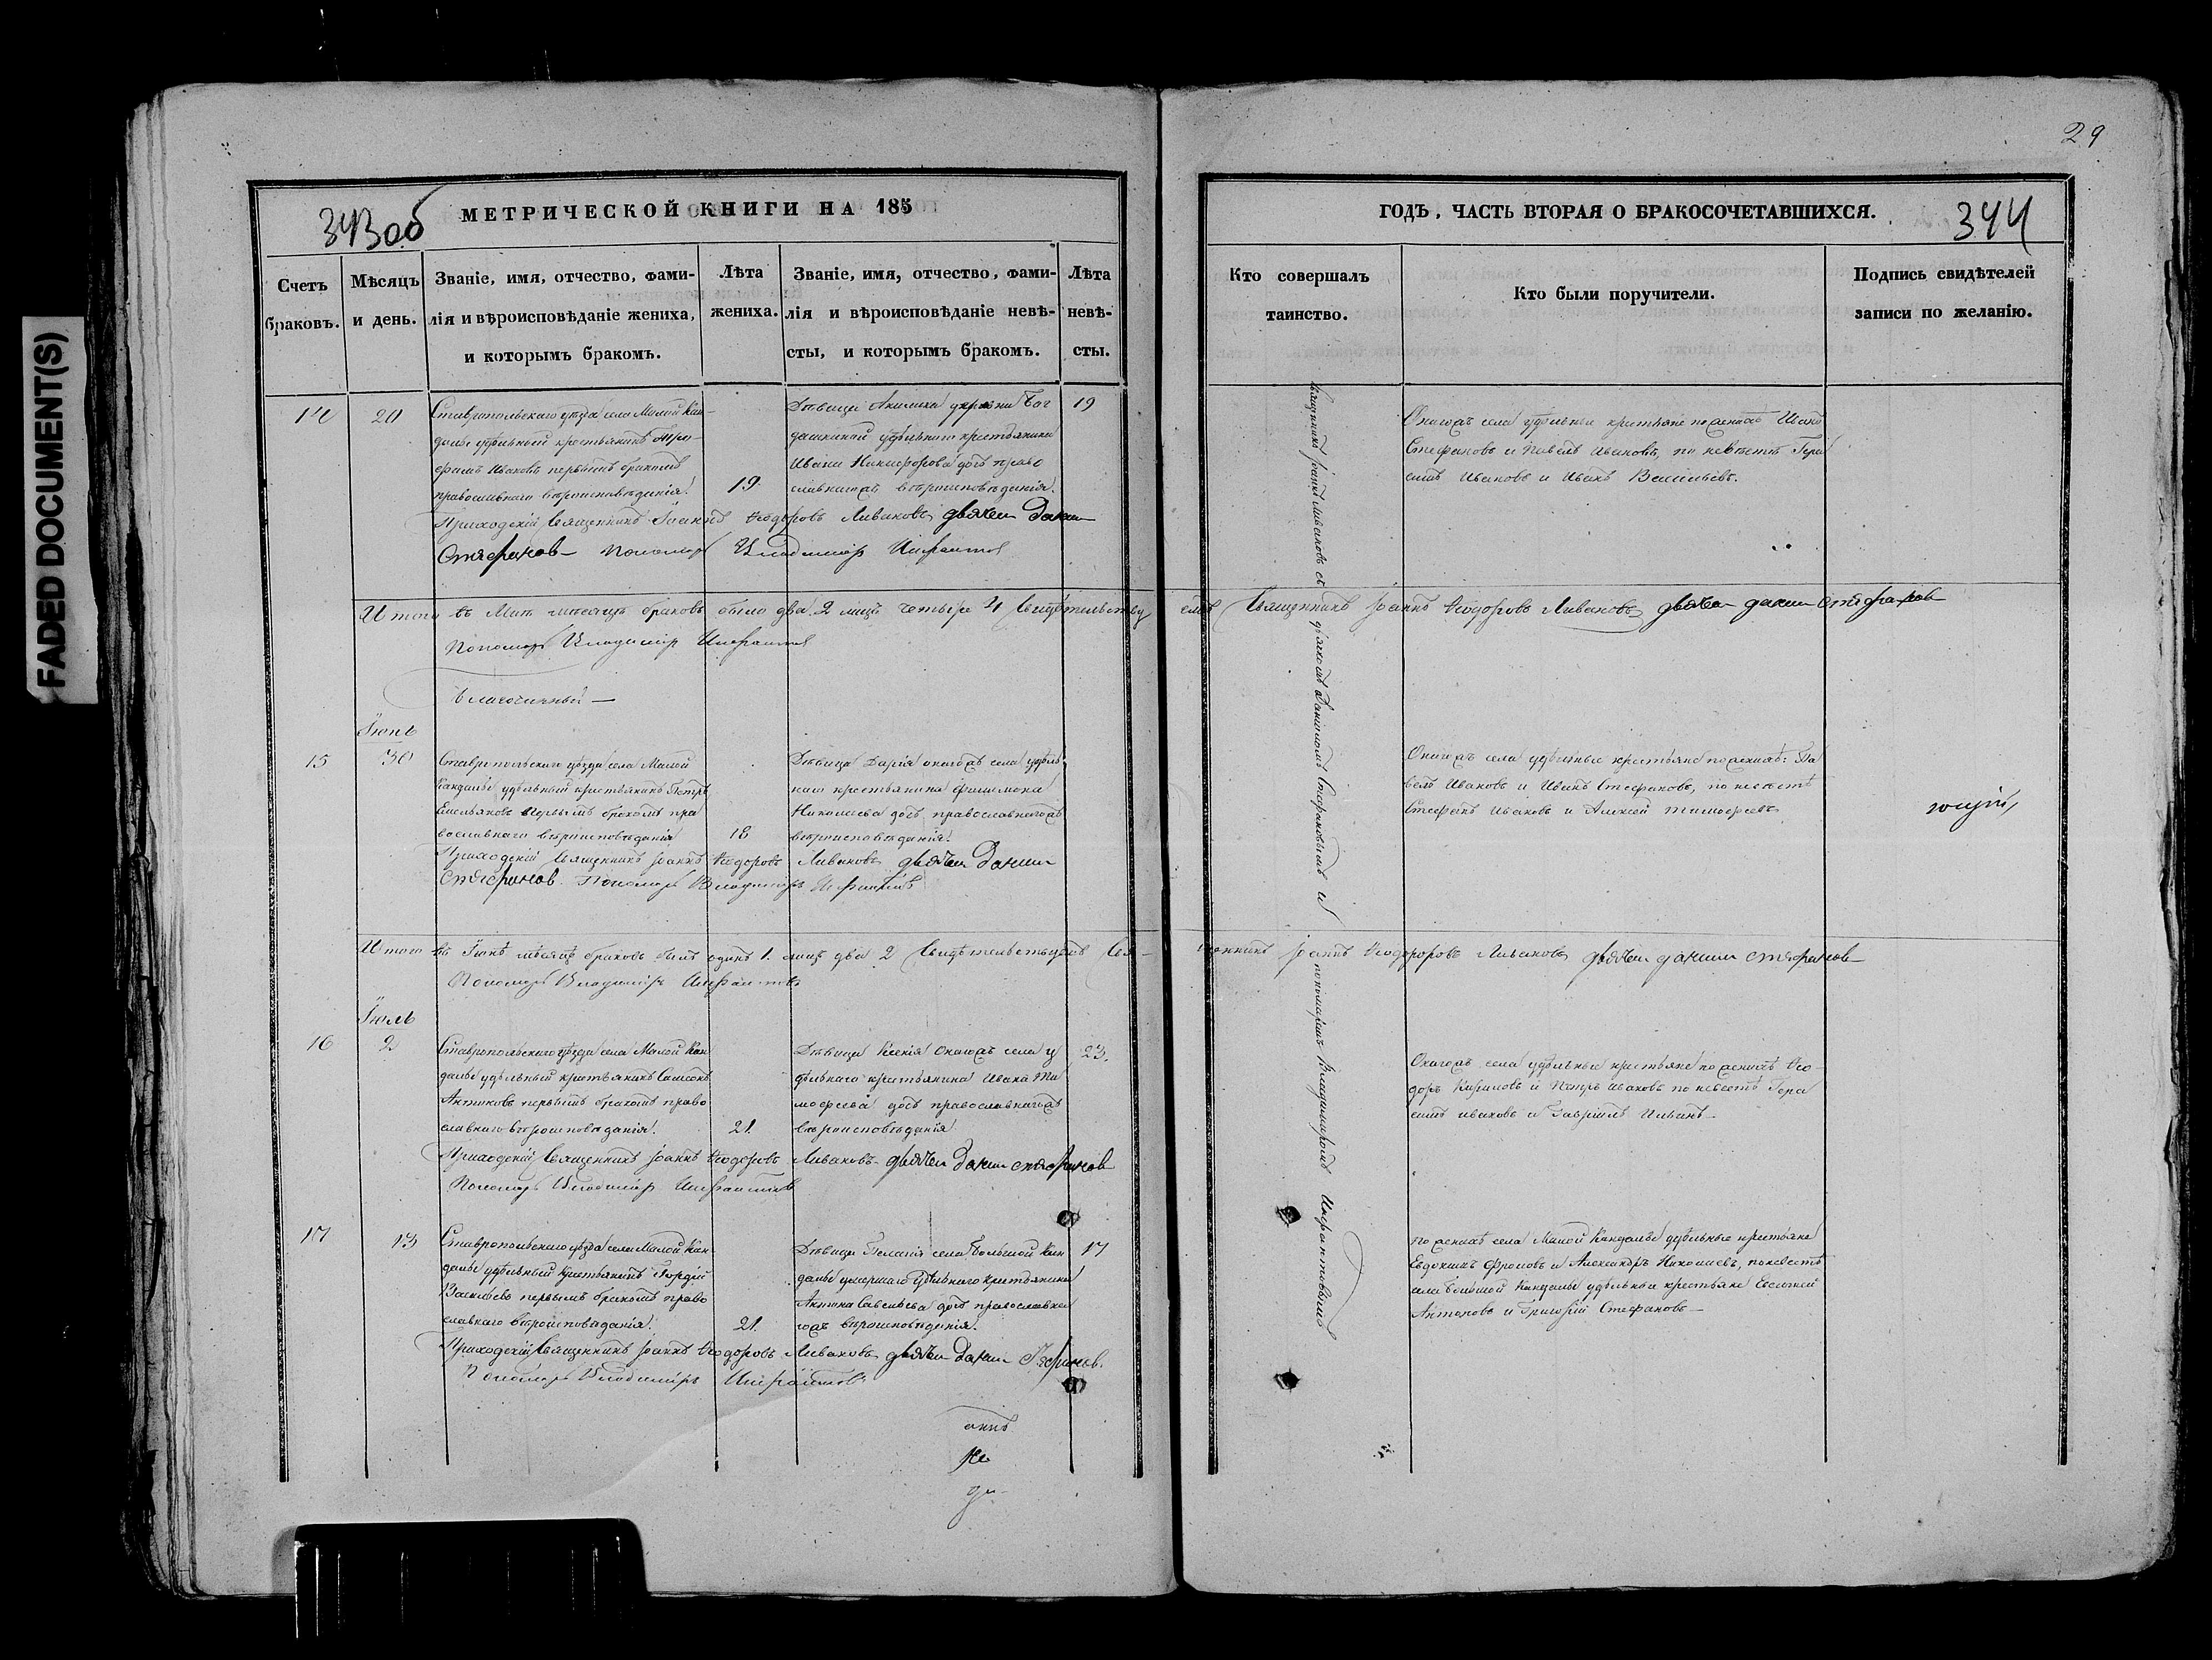 FADED DOCUMENT(S)
29
343об
МЕТРИЧЕСКОЙ КНИГИ НА 185
Счетъ браковъ.
Мѣсяцъ и день.
Званіе, имя, отчество, фами-
лія и вѣроисповѣданіе жениха,
и которымъ бракомъ.
Лѣта
жениха.
Званіе, имя, отчество, фами-
лія и вѣроисповѣданіе невѣ-
сты, и которымъ бракомъ.
Лѣта
невѣ-
сты.
14
20
Ставропольскаго уѣзда села Малой Кан-
далы удѣльный крестьянинъ
Ивановъ первымъ бракомъ
православнаго вѣроисповѣданія.
19
Дѣвица Акилина
удѣльнаго крестьянина
Ивана Никифорова дочь право
славнагожъ вѣроисповѣданія.
19
Приходскій Священникъ Іоаннъ Ѳеодоровъ Ливановъ дьячек Данил
Стефанов Пономарь Владиміръ
Итого въ Маѣ мѣсяцѣ браковъ было два 2 лицъ четыре 4 Свидѣтельству
емъ Священникъ Іоаннъ Ѳеодоровъ Ливановъ дьячек данил стефанов
Пономарь Владиміръ
Благочинный —
Іюнь
15
30
Ставропольскаго уѣзда села Малой
Кандалы удѣльный крестьянинъ Петръ
Емельяновъ первымъ бракомъ пра
вославнаго вѣроисповѣданія
18
Дѣвица Дарія оногожъ села удѣль
наго крестьянина Филимона
Николаева дочь православнагожъ
вѣроисповѣданія.
Приходскій Священникъ Іоаннъ Ѳеодоровъ Ливановъ дьячек Данил
стефанов Пономарь Владиміръ
Итого въ Іюнѣ мѣсяцѣ браковъ былъ одинъ 1. лицъ два 2 Свидѣтельствуемъ Свя-
щенникъ Іоаннъ Ѳеодоровъ Ливановъ дьячек данил стефанов
Пономарь Владиміръ
Іюль
16
2
Ставропольскаго уѣзда села Малой Кан
далы удѣльный крестьянинъ Самсонъ
Антиповъ первымъ бракомъ право
славнаго вѣроисповѣданія.
21.
Дѣвица Ксенія Оногожъ села у
дѣльнаго крестьянина Ивана Ти
моѳеева дочь православнагожъ
вѣроисповѣданія
23.
Приходскій Священникъ Іоаннъ Ѳеодоровъ Ливановъ дьячек Данил стефанов
Пономарь Владиміръ
17
13
Ставропольскаго уѣзда села Малой Кан
далы удѣльный крестьянинъ Гордѣй
Васильевъ первымъ бракомъ право
славнаго вѣроисповѣданія.
21.
Дѣвица Пелагія села Большой Кан
далы умершаго удѣльнаго крестьянина
Антона Савельева дочь православна
гожъ вѣроисповѣданія.
17
Приходскій Священникъ Іоаннъ Ѳеодоровъ Ливановъ дьячек Данил
Пономарь Владиміръ
ГОДЪ, ЧАСТЬ ВТОРАЯ О БРАКОСОЧЕТАВШИХСЯ.
344
Кто совершалъ
таинство.
Кто были поручители.
Подпись свидѣтелей
записи по желанію.
Священникъ Іоаннъ Ливановъ съ дьячкомъ Даніиломъ Стефановымъ и пономаремъ Владиміромъ
Оногожъ села удѣльные крестьяне по женихѣ Иванъ
Стефановъ и Павелъ Ивановъ, по невѣстѣ Гера
симъ Ивановъ и Иванъ Васильевъ.
Оногожъ села удѣльные крестьяне по женихѣ: Па
велъ Ивановъ и Иванъ Стефановъ, по невѣстѣ
Стефанъ Ивановъ и Алексѣй Тимоѳеевъ
Оногожъ села удѣльные крестьяне по женихѣ Ѳео
доръ Кириловъ и Петръ Ивановъ по невѣстѣ Гера
симъ Ивановъ и Гавріилъ Ильинъ
По женихѣ села Малой Кандалы удѣльные крестьяне
Евдокимъ Фроловъ и Александръ Николаевъ, по невѣстѣ
села Большой Кандалы удѣльные крестьяне
Антоновъ и Григорій Стефановъ